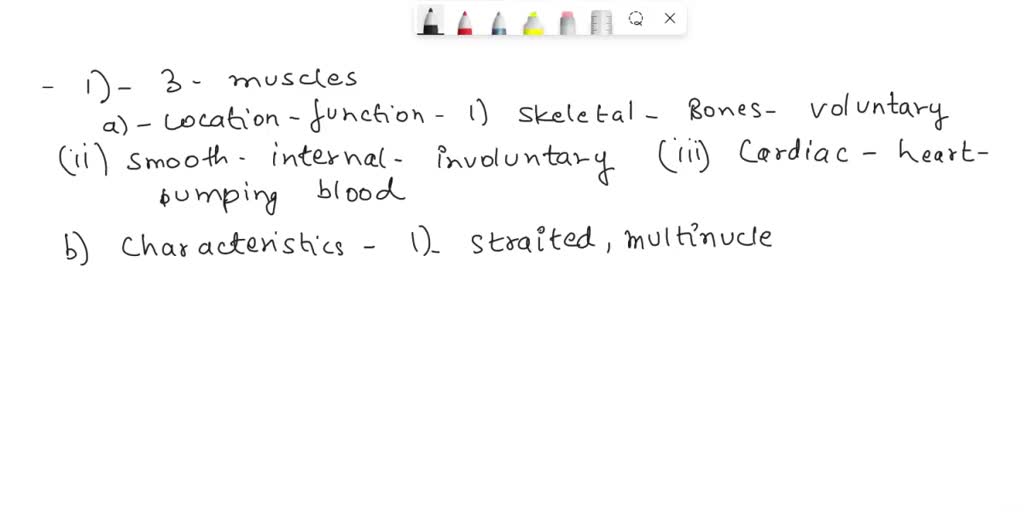 - 1)- 3- muscles
a)- Location - function - 1) Skeletal - Bones - voluntary
(ii) smooth - internal - involuntary (iii) Cardiac - heart -
pumping blood
b) Characteristics - 1)- straited, multinucle